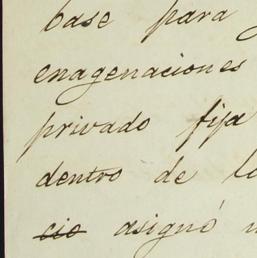 base para
enagenaciones
privado fija
dentro de
cio asignó